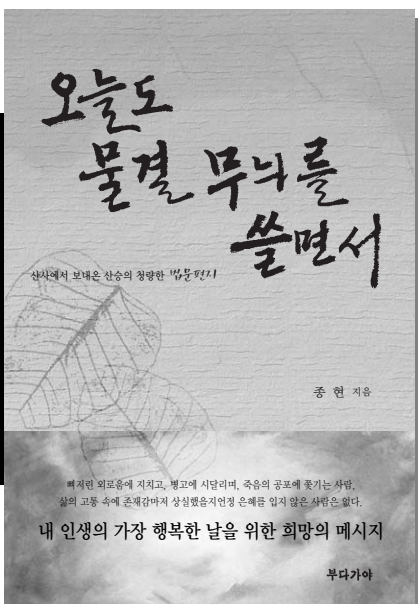 오늘도
물결 무늬를
쓸면서
산사에서 보내온 산승의 청량한 법문편지
종현 지음
뼈저린 외로움에 지치고, 병고에 시달리며, 죽음의 공포에 쫓기는 사람,
삶의 고통 속에 존재감마저 상실했을지언정 은혜를 입지 않은 사람은 없다.
내 인생의 가장 행복한 날을 위한 희망의 메시지
부다가야